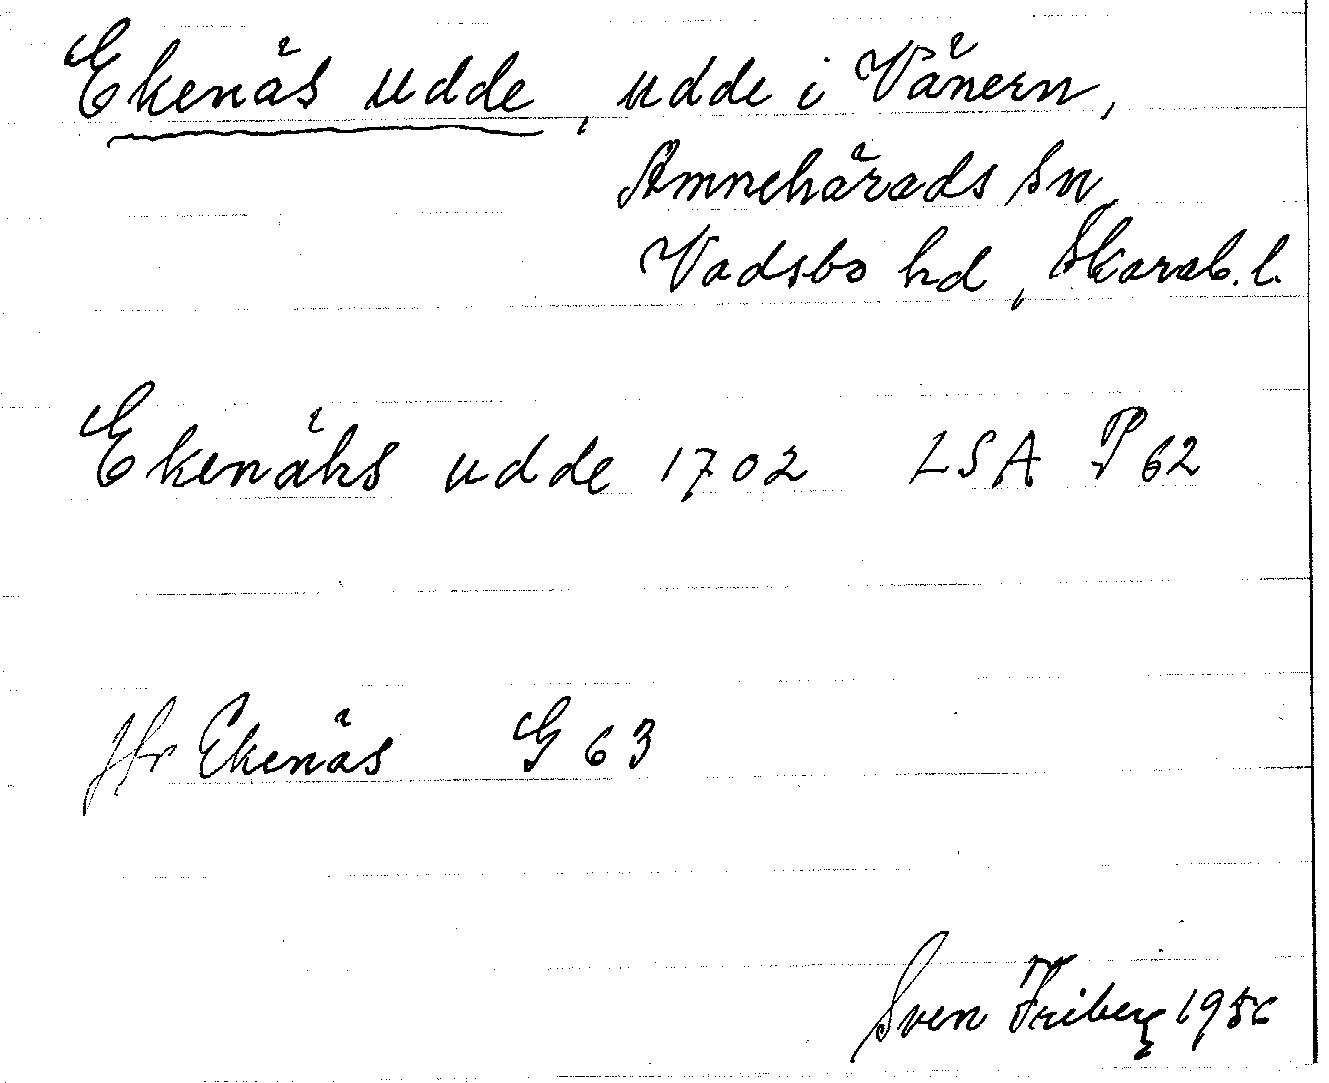 Ekenäs udde, udde i Vänern,
Amnehärads sn,
Vadsbo hd, Skarab. l.
Ekenähs udde 1702 LSA P 62
Jfr Ekenäs G 63
Sven Friberg 1956